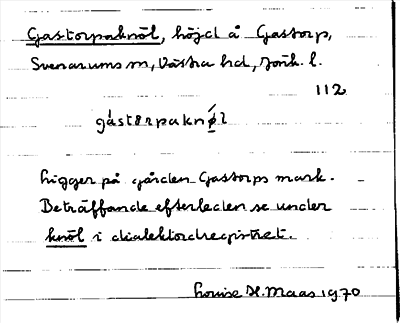 Gastorpaknöl, höjd å Gastorp,
Svenarums sn, Västra hd, Jönk. l.
112
Ligger på gården Gastorps mark.
Beträffande efterleden se under
knöl i dialektordregistret.
Louise H. Maas 1970